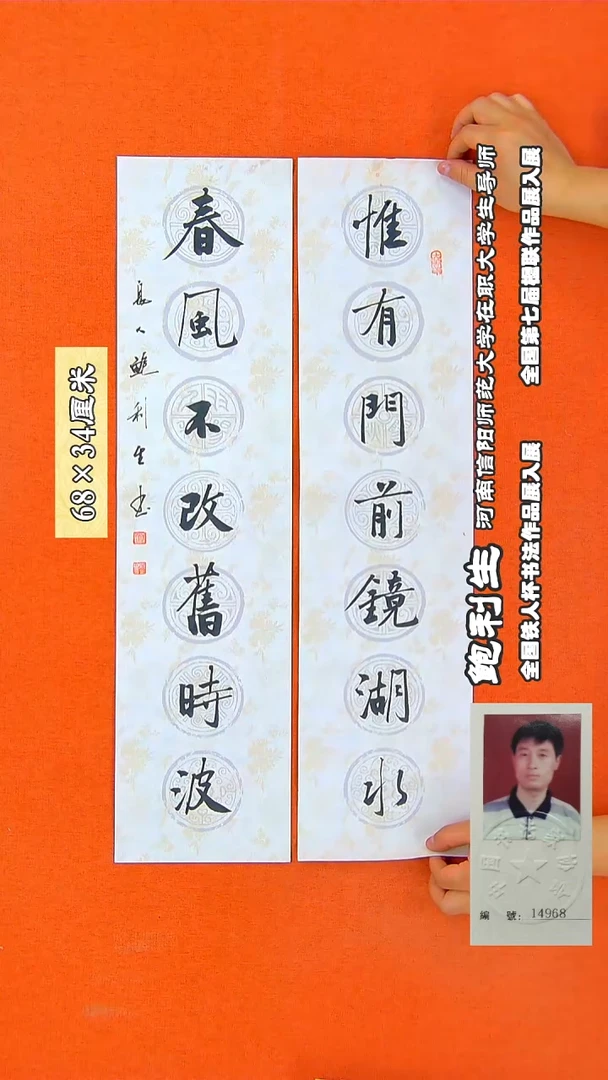 惟有門前鏡湖水
春風不改舊時波
鮑利生書
68×34厘米
鲍利生
河南信阳师范大学在职大学生导师
全国第七届楹联作品展入展
全国铁人杯书法作品展入展
編 號: 14968